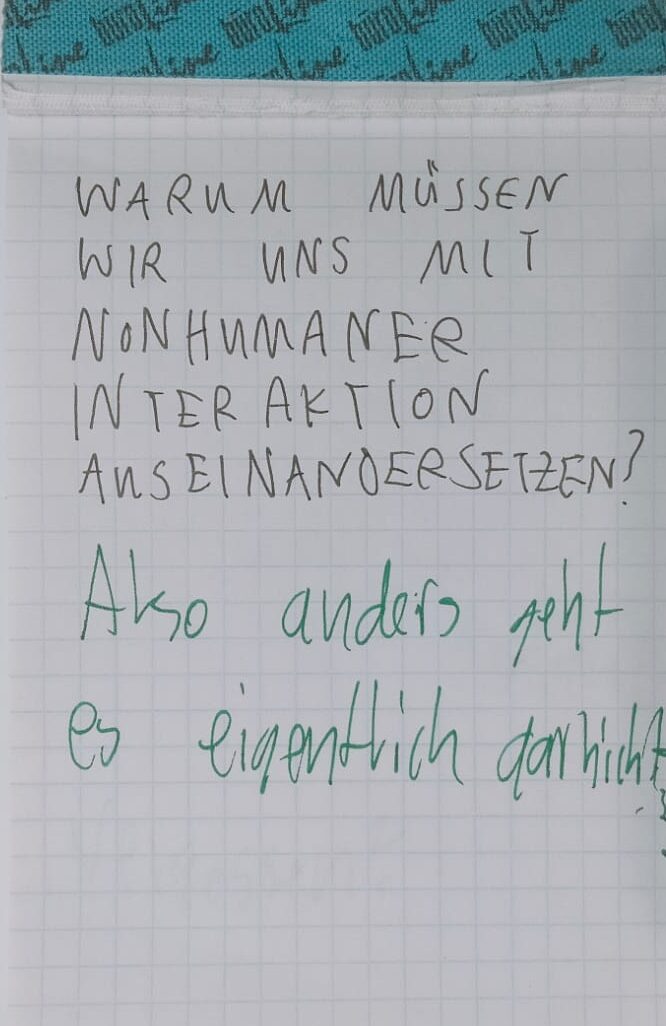 WARUM MÜSSEN
WIR UNS MIT
NONHUMANER
INTERAKTION
AUSEINANDERSETZEN?
Also anders geht
es eigentlich gar nicht